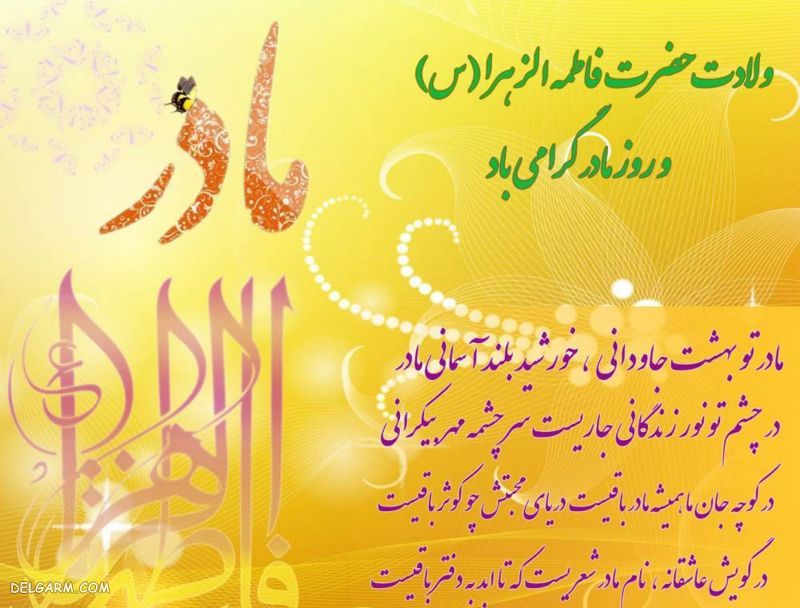 ولادت حضرت فاطمه الزهرا (س)
و روز مادر گرامی باد
مادر
مادر تو بهشت جاودانی ، خورشید بلند آسمانی مادر
در چشم تو نور زندگانی جاریست سرچشمه مهر بیکرانی
در کوچه جان ما همیشه مادر باقیست دریای محبتش چو کوثر باقیست
در گویش عاشقانه ، نام مادر شعریست که تا ابد به دفتر باقیست
فاطمة الزهراء
DELGARM.COM